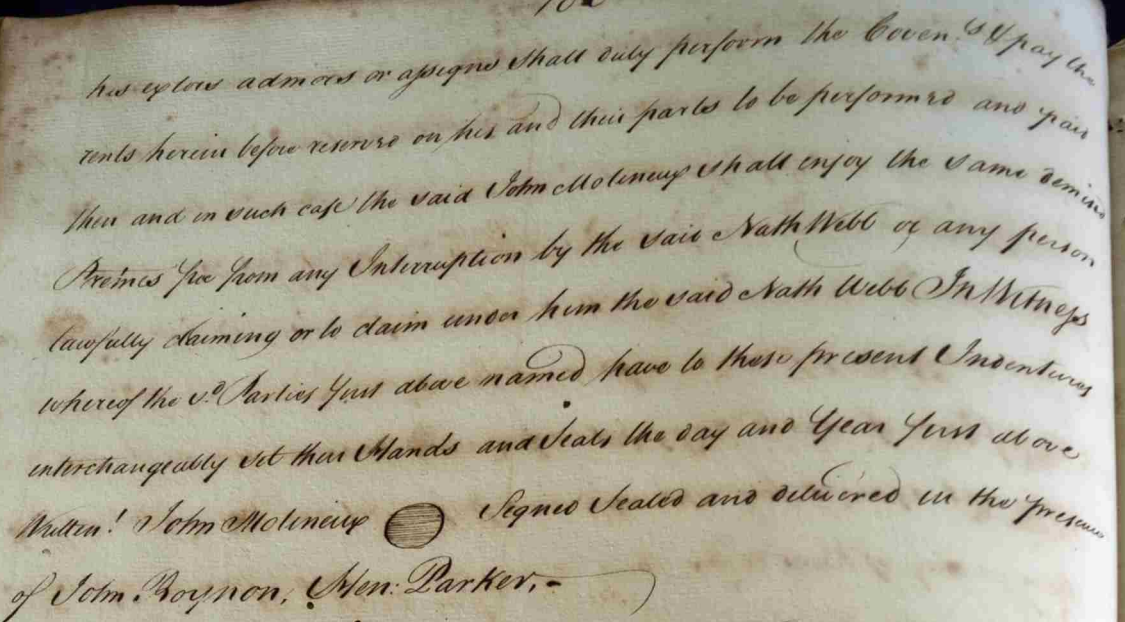 his exlors admors or assigns shall duly perform the Coven.ts & pay the
rents herein before reserved on his and their parts to be performed and paid
then and in such case the said John Molineux shall enjoy the same demised
Premes free from any Interruption by the said Nath Webb or any person
lawfully claiming or to claim under him the said Nath Webb In Witness
whereof the sd. Parties first above named have to these present Indentures
interchangeably set their Hands and Seals the day and Year first above
Written! John Molineux Signed Sealed and delivered in the presence
of John Boynon, Hen: Parker.-